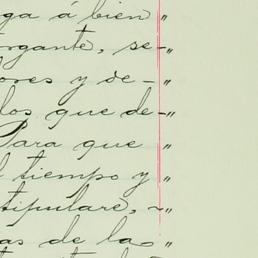 ga á bien "
organte, se- "
ores y de- "
los que de- "
Para que "
l tiempo y "
tipulare, - "
as de la "